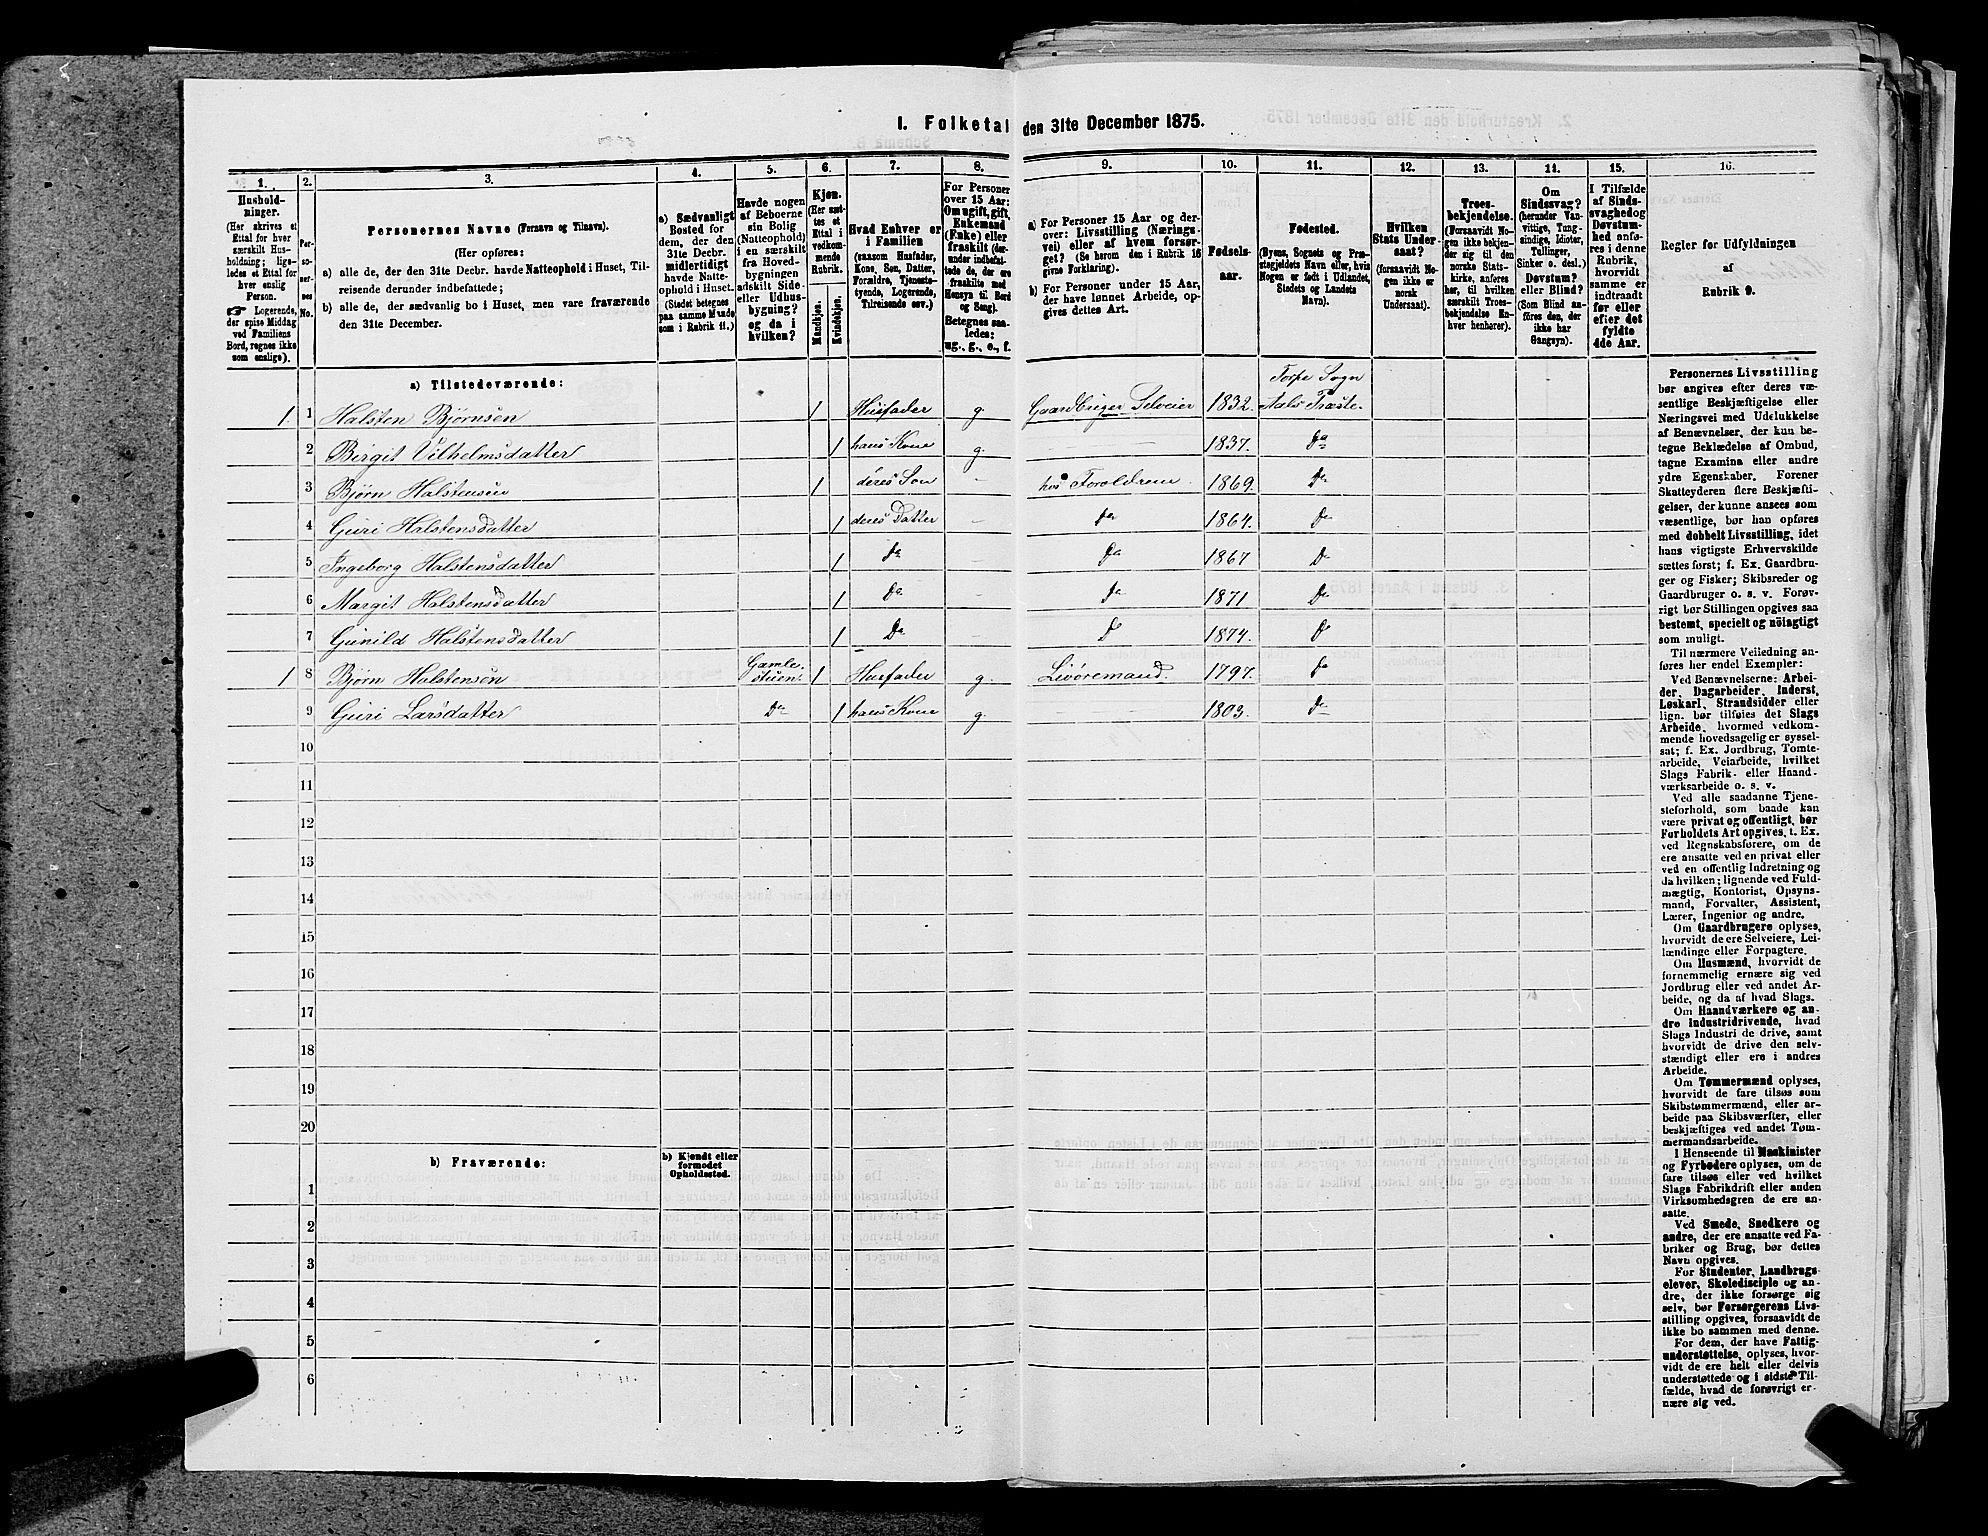 I. Folketal den 31te December 1875.
1. 2. 3. 4. 5. 6. 7. 8. 9. 10. 11. 12. 13. 14. 15. 16.
Hushold-
ninger.
(Her skrives et
Ettal for hver
særskilt Hus-
holdning; lige-
ledes et Ettal for
hver enslig
Person.
☞ Logerende,
der spise Middag
ved Familiens
Bord, regnes ikke
som enslige).
Per-
soner-
nes
No.
Personernes Navne (Fornavn og Tilnavn).
(Her opføres:
a) alle de, der den 31te Decbr. havde Natteophold i Huset, Til-
reisende derunder indbefattede;
b) alle de, der sædvanlig bo i Huset, men vare fraværende
den 31te December.
a) Sædvanligt
Bosted for
dem, der den
31te Decbr.
midlertidigt
havde Natte-
ophold i Huset.
(Stedet betegnes
paa samme Maade
som i Rubrik 11.)
Havde nogen
af Beboerne
sin Bolig
(Natteophold)
i en særskilt
fra Hoved-
bygningen
adskilt Side-
eller Udhus-
bygning?
og da i
hvilken?
Kjøn.
(Her sæt-
tes et
Ettal i
vedkom-
mende
Rubrik.
Mandkjøn.
Kvindekjøn.
Hvad Enhver er
i Familien
(saasom Husfader,
Kone, Søn, Datter,
Forældre, Tjeneste-
tyende, Logerende,
Tilreisende osv.)
For Personer
over 15 Aar:
Om ugift, gift,
Enkemand
(Enke) eller
fraskilt (der-
under indbefat-
tede de, der ere
fraskilte med
Hensyn til Bord
og Seng).
Betegnes saa-
ledes:
ug., g., e., f.
a) For Personer 15 Aar og der-
over: Livsstilling (Nærings-
vei) eller af hvem forsør-
get? (Se herom den i Rubrik 16
givne Forklaring).
b) For Personer under 15 Aar,
der have lønnet Arbeide, op-
gives dettes Art.
Fødsels-
aar.
Fødested.
(Byens, Sognets og Præ-
stegjeldets Navn eller, hvis
Nogen er født i Udlandet,
Stedets og Landets
Navn).
Hvilken
Stats Under-
saat?
(forsaavidt No-
gen ikke er
norsk
Undersaat).
Troes-
bekjendelse.
(Forsaavidt No-
gen ikke bekjen-
der sig til den
norske Stats-
kirke, anføres
her, til hvilken
særskilt Troes-
bekjendelse En-
hver henhører).
Om
Sindssvag?
(herunder Van-
vittige, Tung-
sindige, Idioter,
Tullinger,
Sinker o. desl.)
Døvstum?
eller Blind?
(Som Blind an-
føres den, der
ikke har
Gangsyn).
I Tilfælde
af Sinds-
svaghed og
Døvstum-
hed anfø-
res i denne
Rubrik,
hvorvidt
samme er
indtraadt
før eller
efter det
fyldte
4de Aar.
Regler for Udfyldningen
af
Rubrik 9.
a) Tilstedeværende:
Torpe Sogn
1. 1 Halsten Bjørnsen 1 Husfader g. Gaardbruger Selveier 1832. Aals Præste.
2 Birgit Vilhelmsdatter 1 hans Kone g. — 1837. Do
3 Bjørn Halstensen 1 deres Søn — hos Forældrene 1869. Do
4 Guri Halstensdatter 1 deres Datter — Do 1864. Do
5 Ingeborg Halstensdatter 1 Do — Do 1867 Do
6 Margit Halstensdatter 1 Do — Do 1871 Do
7 Gunild Halstensdatter 1 Do — Do 1874. Do
Gamle-
1 8 Bjørn Halstensen stuen. 1 Husfader g. Livøremand. 1797. Do
9 Guri Larsdatter Do 1 hans Kone g. — 1803. Do
10
11
12
13
14
15
16
17
18
19
20
b) Fraværende:
b) Kjendt eller
formodet
Opholdssted.
1
2
3
4
5
6
Personernes Livsstilling
bør angives efter deres væ-
sentlige Beskjæftigelse eller
Næringsvei med Udelukkelse
af Benævnelser, der kun be-
tegne Beklædelse af Ombud,
tagne Examina eller andre
ydre Egenskaber. Forener
Skatteyderen flere Beskjæfti-
gelser, der kunne ansees som
væsentlige, bør han opføres
med dobbelt Livsstilling, idet
hans vigtigste Erhvervskilde
sættes først; f. Ex. Gaardbru-
ger og Fisker; Skibsreder og
Gaardbruger o. s. v. Forøv-
rigt bør Stillingen opgives saa
bestemt, specielt og nøiagtigt
som muligt.
Til nærmere Veiledning an-
føres her endel Exempler:
Ved Benævnelserne: Arbei-
der, Dagarbeider, Inderst,
Løskarl, Strandsidder eller
lign. bør tilføies det Slags
Arbeide, hvormed vedkom-
mende hovedsagelig er syssel-
sat; f. Ex. Jordbrug, Tomte-
arbeide, Veiarbeide, hvilket
Slags Fabrik- eller Haand-
værksarbeide o. s. v.
Ved alle saadanne Tjene-
steforhold, som baade kan
være privat og offentligt, bør
Forholdets Art opgives, t. Ex.
ved Regnskabsførere, om de
ere ansatte ved en privat eller
ved en offentlig Indretning og
da hvilken; lignende ved Fuld-
mægtig, Kontorist, Opsyns-
mand, Forvalter, Assistent,
Lærer, Ingeniør og andre.
Om Gaardbrugere oplyses,
hvorvidt de ere Selveiere, Lei-
lændinge eller Forpagtere.
Om Husmænd, hvorvidt de
fornemmelig ernære sig ved
Jordbrug eller ved andet Ar-
beide, og da af hvad Slags.
Om Haandværkere og an-
dre Industridrivende, hvad
Slags Industri de drive, samt
hvorvidt de drive den selv-
stændigt eller ere i andres
Arbeide.
Om Tømmermænd oplyses,
hvorvidt de fare tilsøs som
Skibstømmermænd, eller ar-
beide paa Skibsværfter, eller
beskjæftiges ved andet Tøm-
mermandsarbeide.
I Henseende til Maskinister
og Fyrbødere oplyses, om de
fare tilsøs eller ved hvilket
Slags Fabrikdrift eller anden
Virksomhedsgren de ere an-
satte.
Ved Smede, Snedkere og
andre, der ere ansatte ved Fa-
briker og Brug, bør dettes
Navn opgives.
For Studenter, Landbrugs-
elever, Skoledisciple og an-
dre, der ikke forsørge sig
selv, bør Forsørgerens Livs-
stilling opgives, forsaavidt de
ikke bo sammen med denne.
For dem, der have Fattig-
understøttelse, oplyses, hvor-
vidt de ere helt eller delvis
understøttede og i sidste Til-
fælde, hvad de forøvrigt er-
nære sig ved.